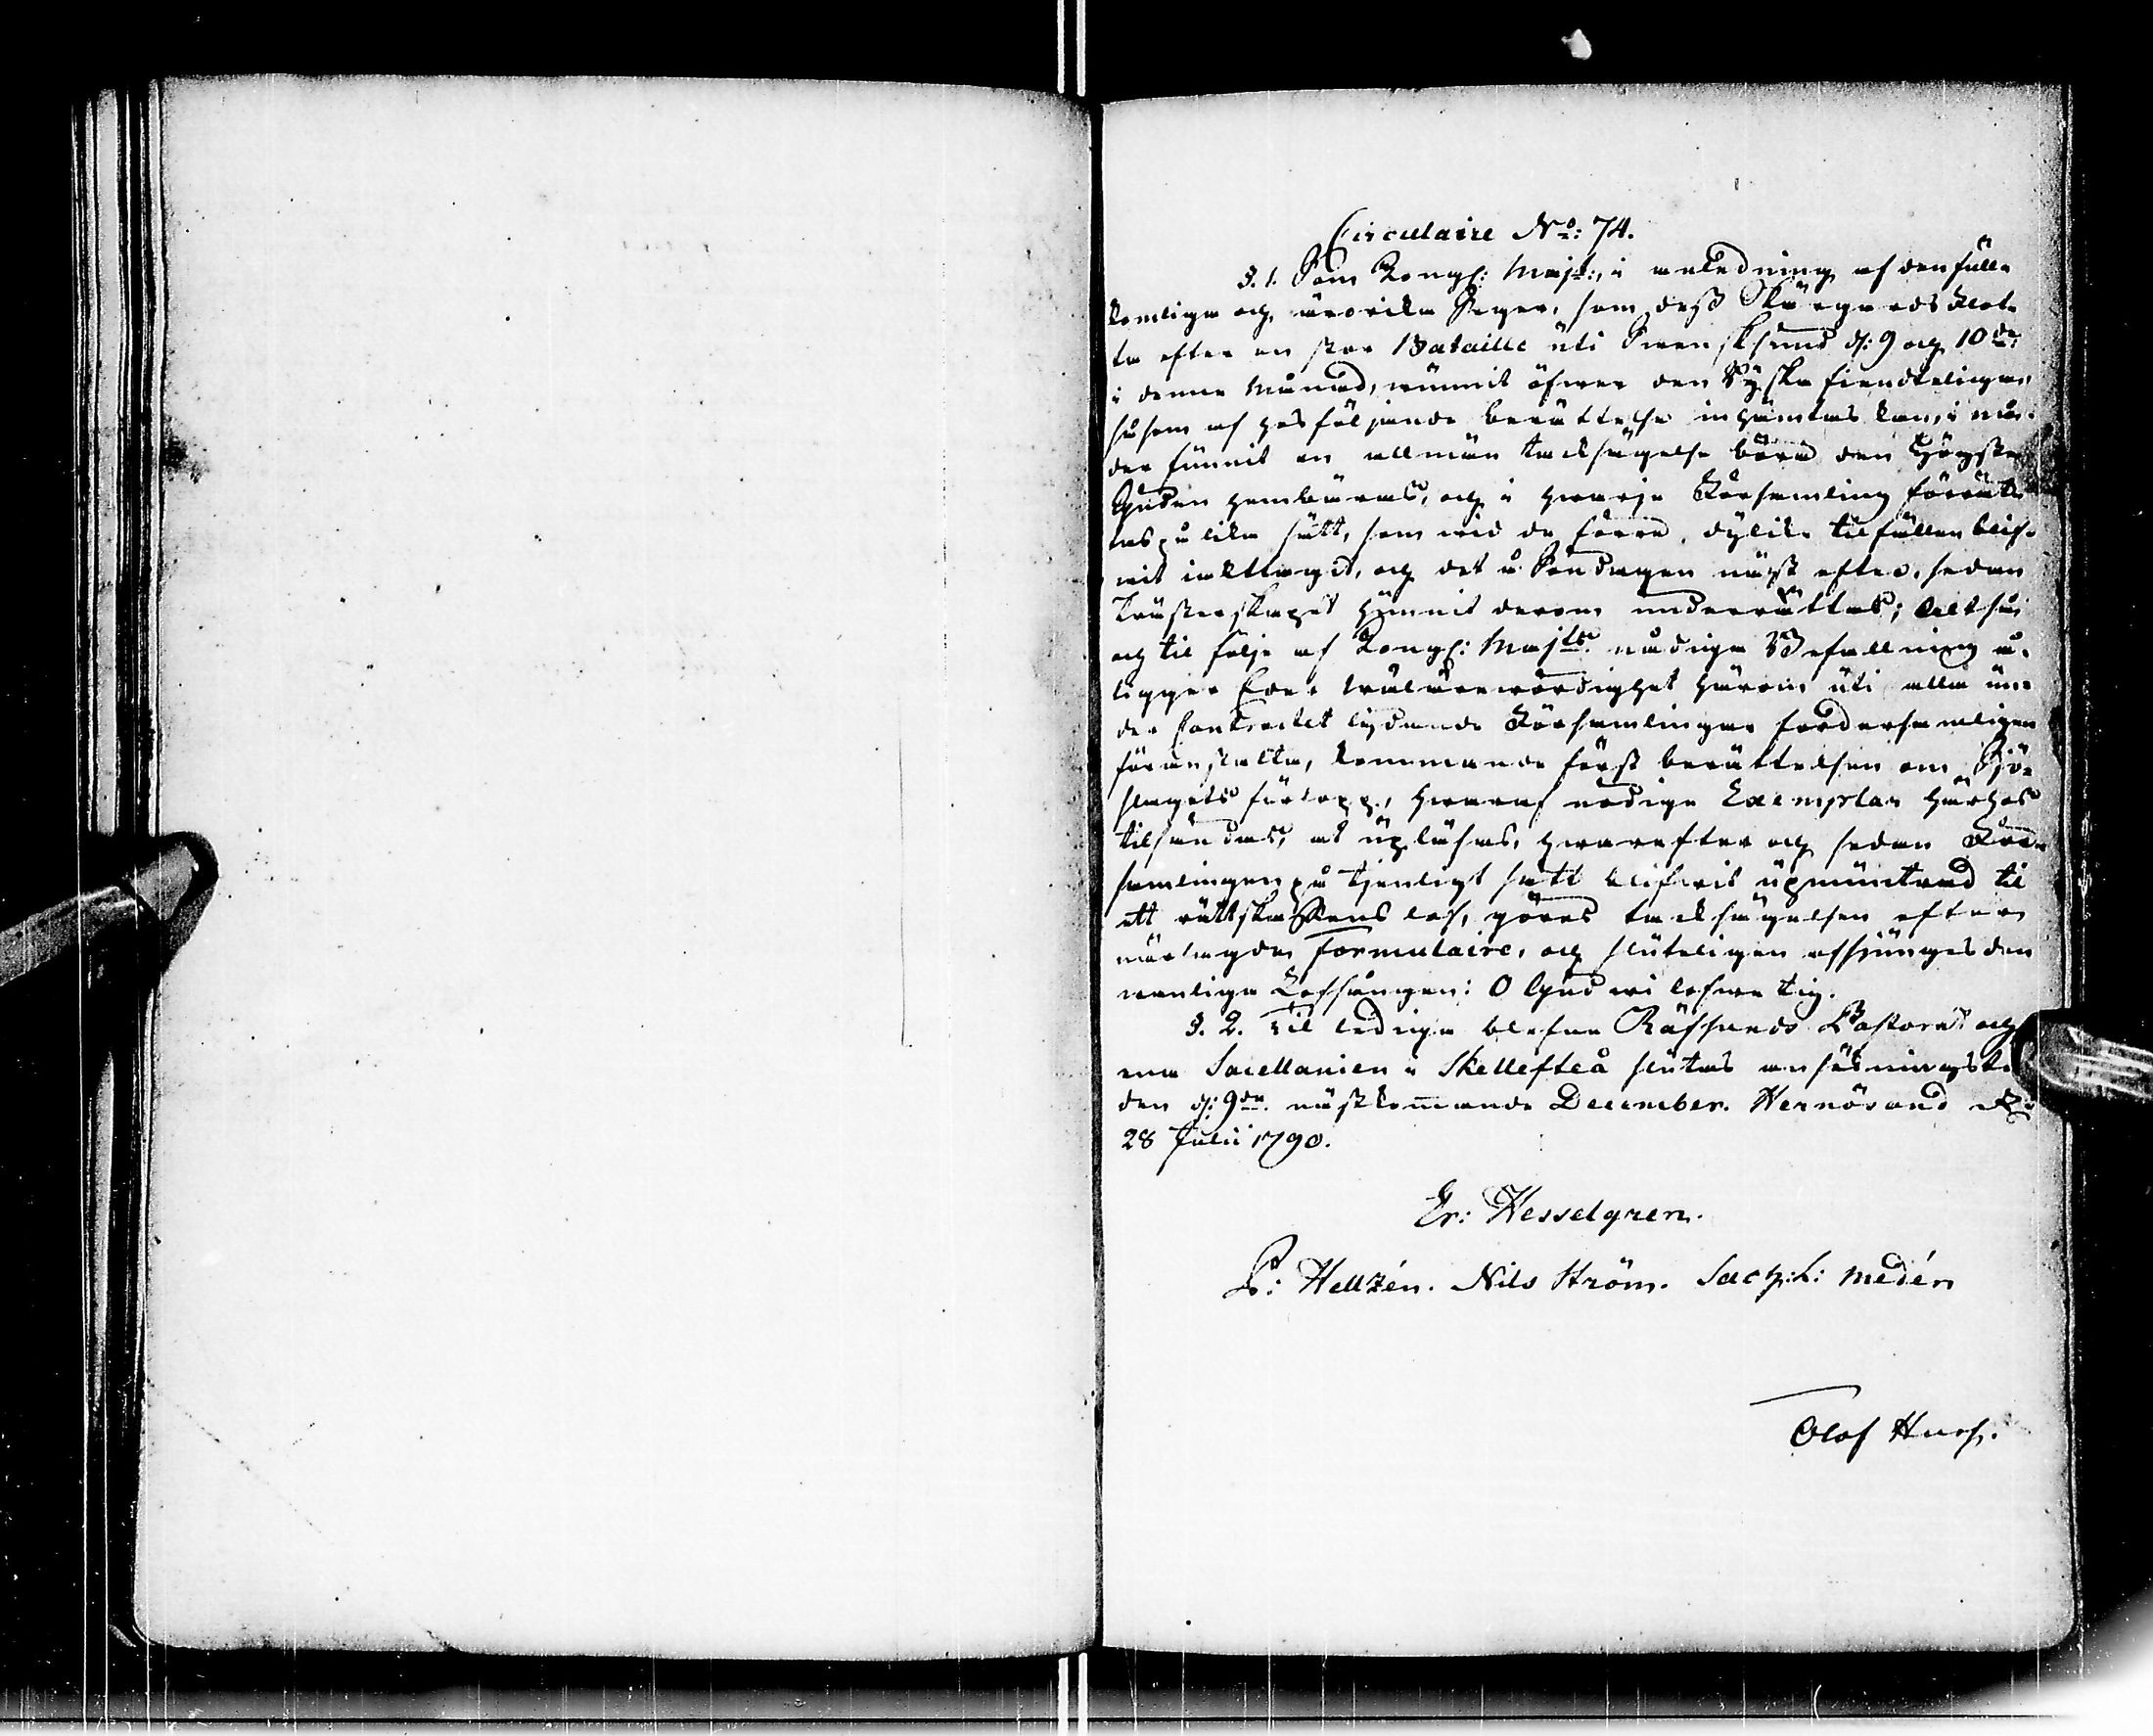 Circulaire No: 74.
§. 1. Som Kongl: Majt:, i anledning af den full-
komliga och ärorika Seger, som dess Skärgårds Flot-
ta efter en stor Bataille uti Svensksund d: 9 och 10de
i denna Månad, wunnit öfwer den Ryska fiendteliga,
såsom af hosföljande berättelse inhämtas kan, i nå-
der funnit en allmän tacksägelse böra den Högste
Guden hembäras, och i hwarje Församling förrät-
tas på lika sätt, som wid de förra dylika tilfällen blif-
wit iakttagit, och det å Söndagen näst efter, sedan
Prästerskapet hunnit derom underrättas; Altså
och til följe af Kongl: Majts nådiga Befallning å-
ligger Eder Wälärewördighet härom uti alla un-
der Contractet lydande Församlingar fordersamligen
föranstalta, kommande först berättelsen om Sjö-
slagets förlopp, hwaraf nödiga Exemplar härhos
tilsändas, at upläsas, hwarefter och sedan För-
samlingen på tjenligt sätt blifwit upmuntrad til
ett rättskaffens lof, göres tacksägelsen efter
närlagde Formulaire, och sluteligen afsjunges den
wanliga Lofsången: O Gud wi lofwe tig.
§. 2. Til lediga blefne Räfsunds Pastorat och
ena Sacellanien i Skellefteå slutas ansökningsti
den d: 9de nästkommande December. Hernösand d:
28 Julii 1790.
Er: Hesselgren.
P: Hellzén. Nils Ström. Zach: L: Medén
Olof Huss.